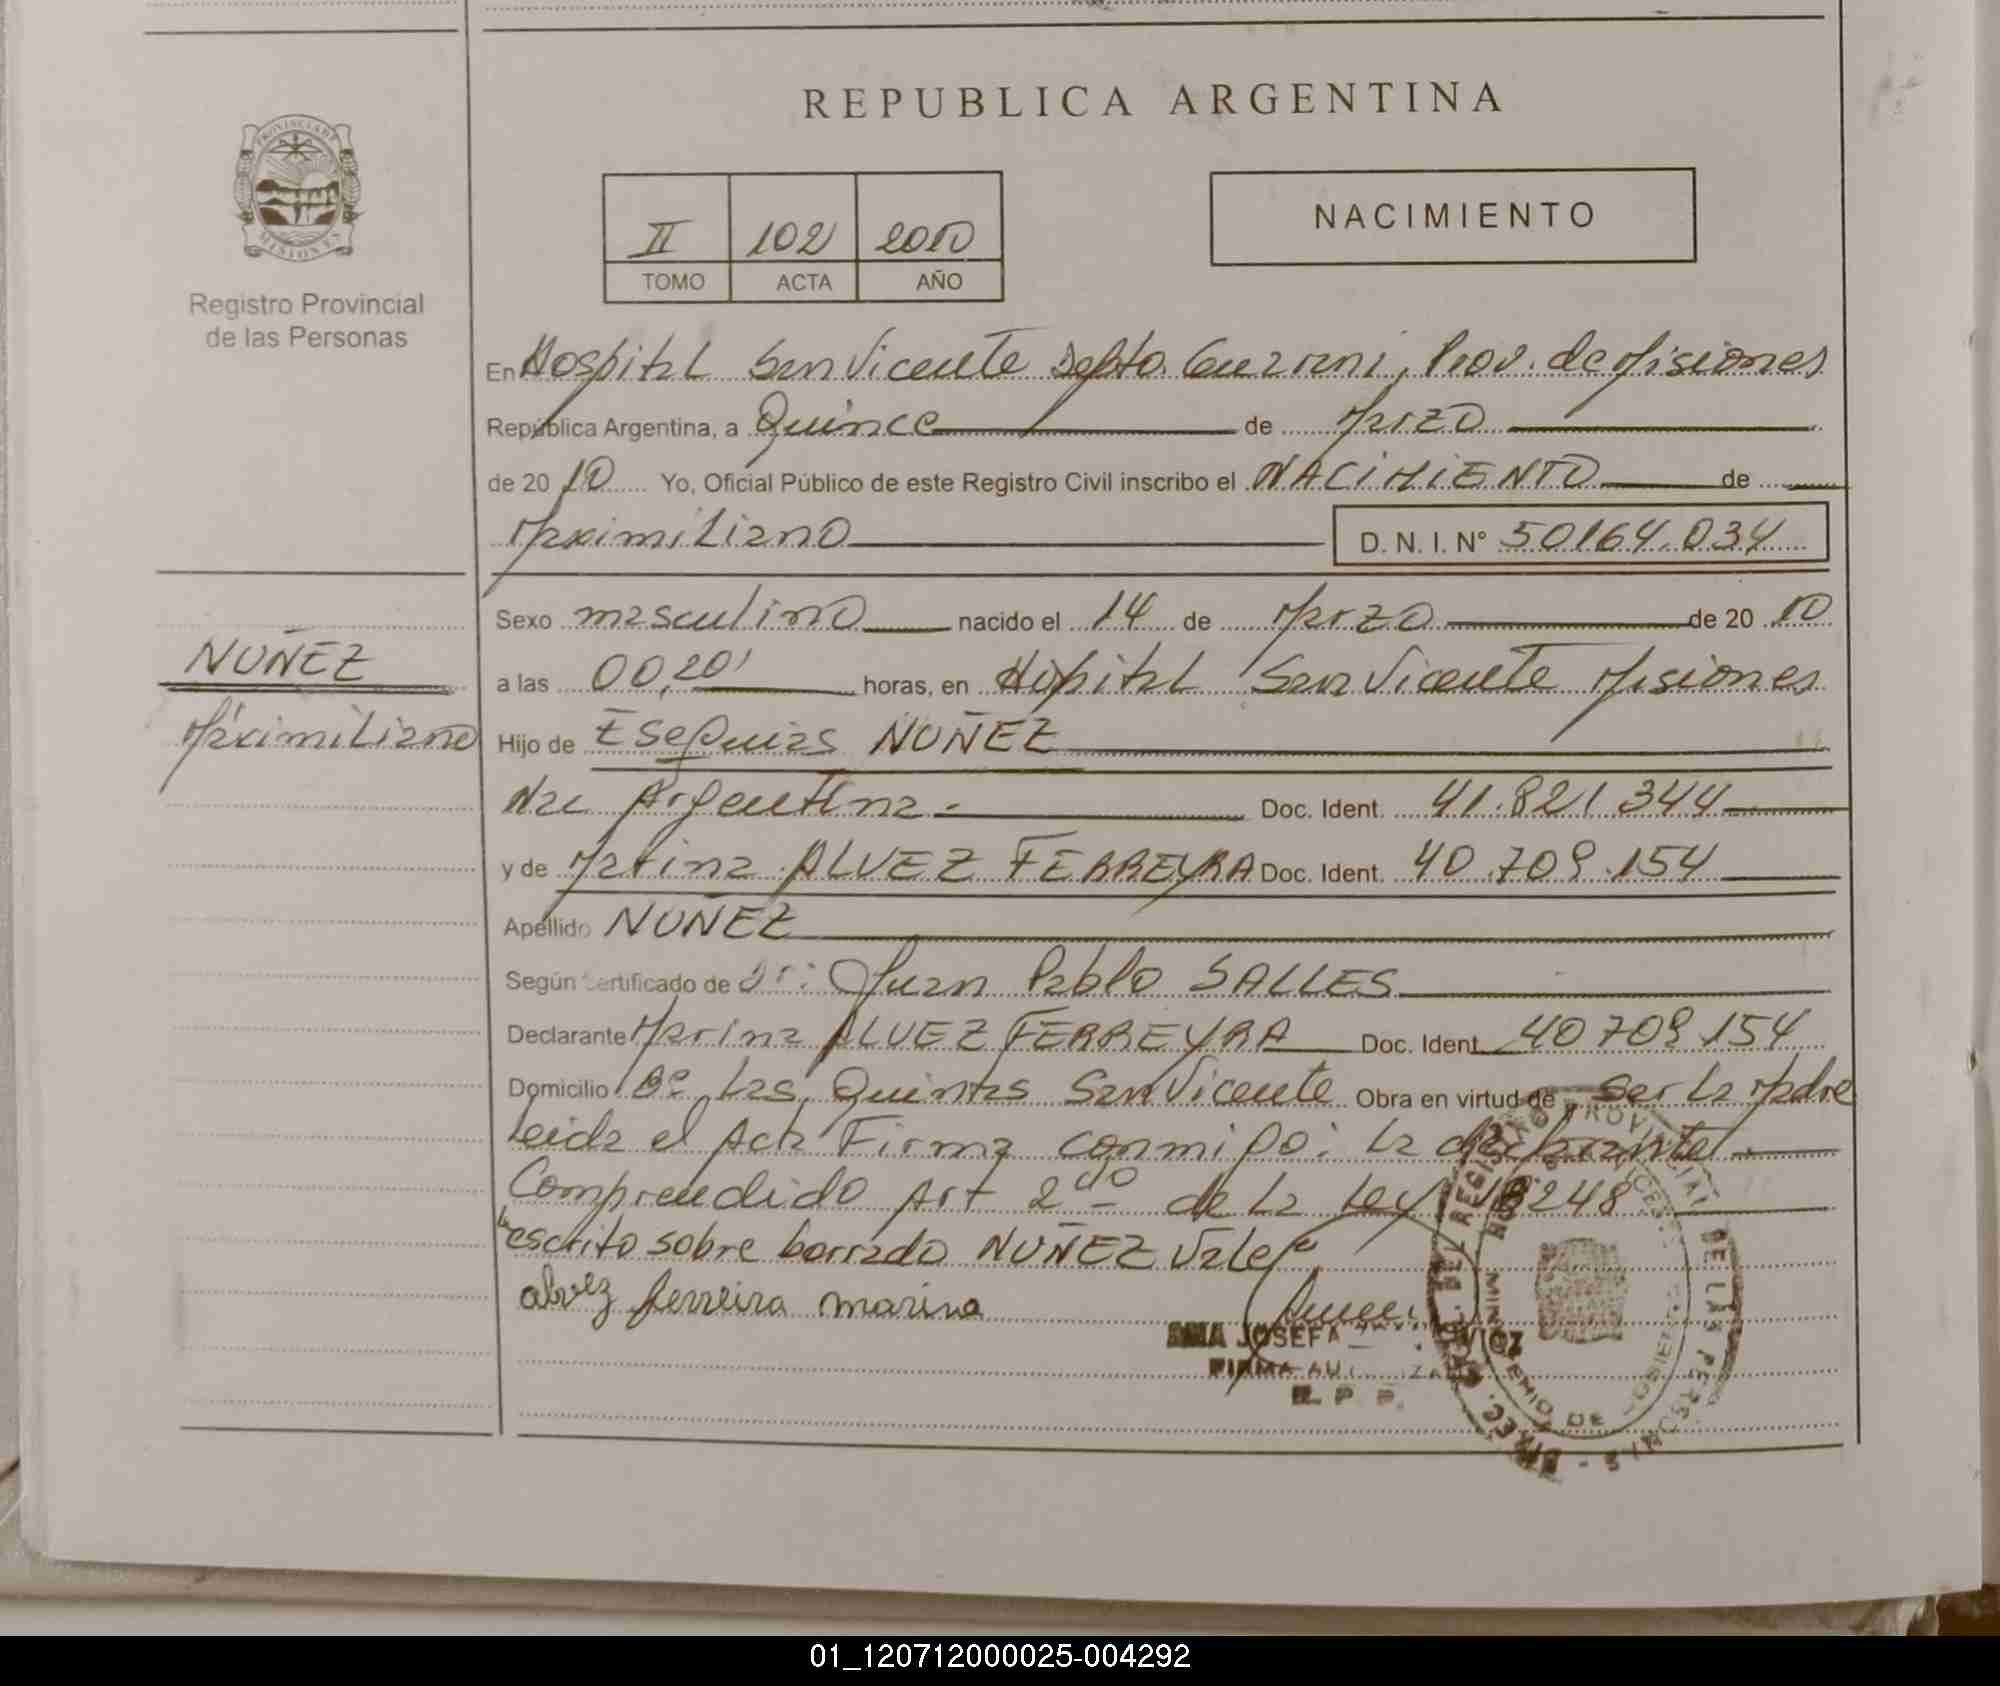 REPUBLICA ARGENTINA
PROVINCIA DE
MISIONES
Registro Provincial
de las Personas
II 102 2010
TOMO ACTA AÑO
NACIMIENTO
En Hospital San Vicente Depto. Guarani, Prov. de Misiones
República Argentina, a Quince de Marzo
de 20 10 Yo, Oficial Público de este Registro Civil inscribo el NACIMIENTO de
Maximiliano D. N. I. N° 50164.034
Sexo masculino nacido el 14 de Marzo de 20 10
NUÑEZ
a las 00,20' horas, en Hospital San Vicente Misiones
Maximiliano
Hijo de Esequias NUÑEZ
Nac Argentina.- Doc. Ident. 41.821.344
y de Marina ALVEZ FERREYRA Doc. Ident. 40.709.154
Apellido NUÑEZ
Según certificado de Dr: Juan Pablo SALLES
Declarante Marina ALVEZ FERREYRA Doc. Ident. 40709.154
Domicilio Bº Las Quintas San Vicente Obra en virtud de Ser la Madre
leida el Acta Firma conmigo: la declarante.
Comprendido Art 2do de la Ley 18248
"escrito sobre borrado NUÑEZ Vale"
alvez ferreira marina
ANA JOSEFA
FIRMA AUTORIZADA
R. P. P.
DIREC. GRAL. DEL REGISTRO PROVINCIAL DE LAS PERSONAS
MINISTERIO DE GOBIERNO
01_120712000025-004292